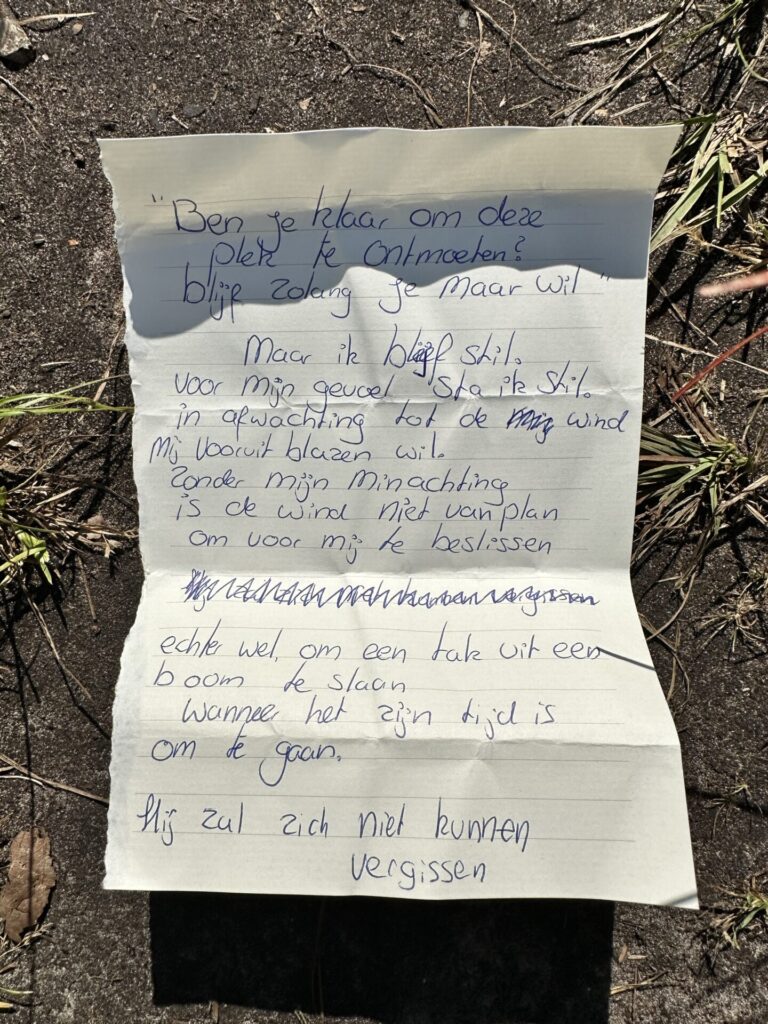 "Ben je klaar om deze
plek te ontmoeten?
blijf zolang je maar wil"
Maar ik blijf stil.
voor mijn gevoel sta ik stil.
in afwachting tot de wind
Mij vooruit blazen wil.
Zonder mijn minachting
is de wind niet van plan
om voor mij te beslissen
echter wel, om een tak uit een
boom te slaan
wanneer het zijn tijd is
om te gaan.
Hij zal zich niet kunnen
vergissen